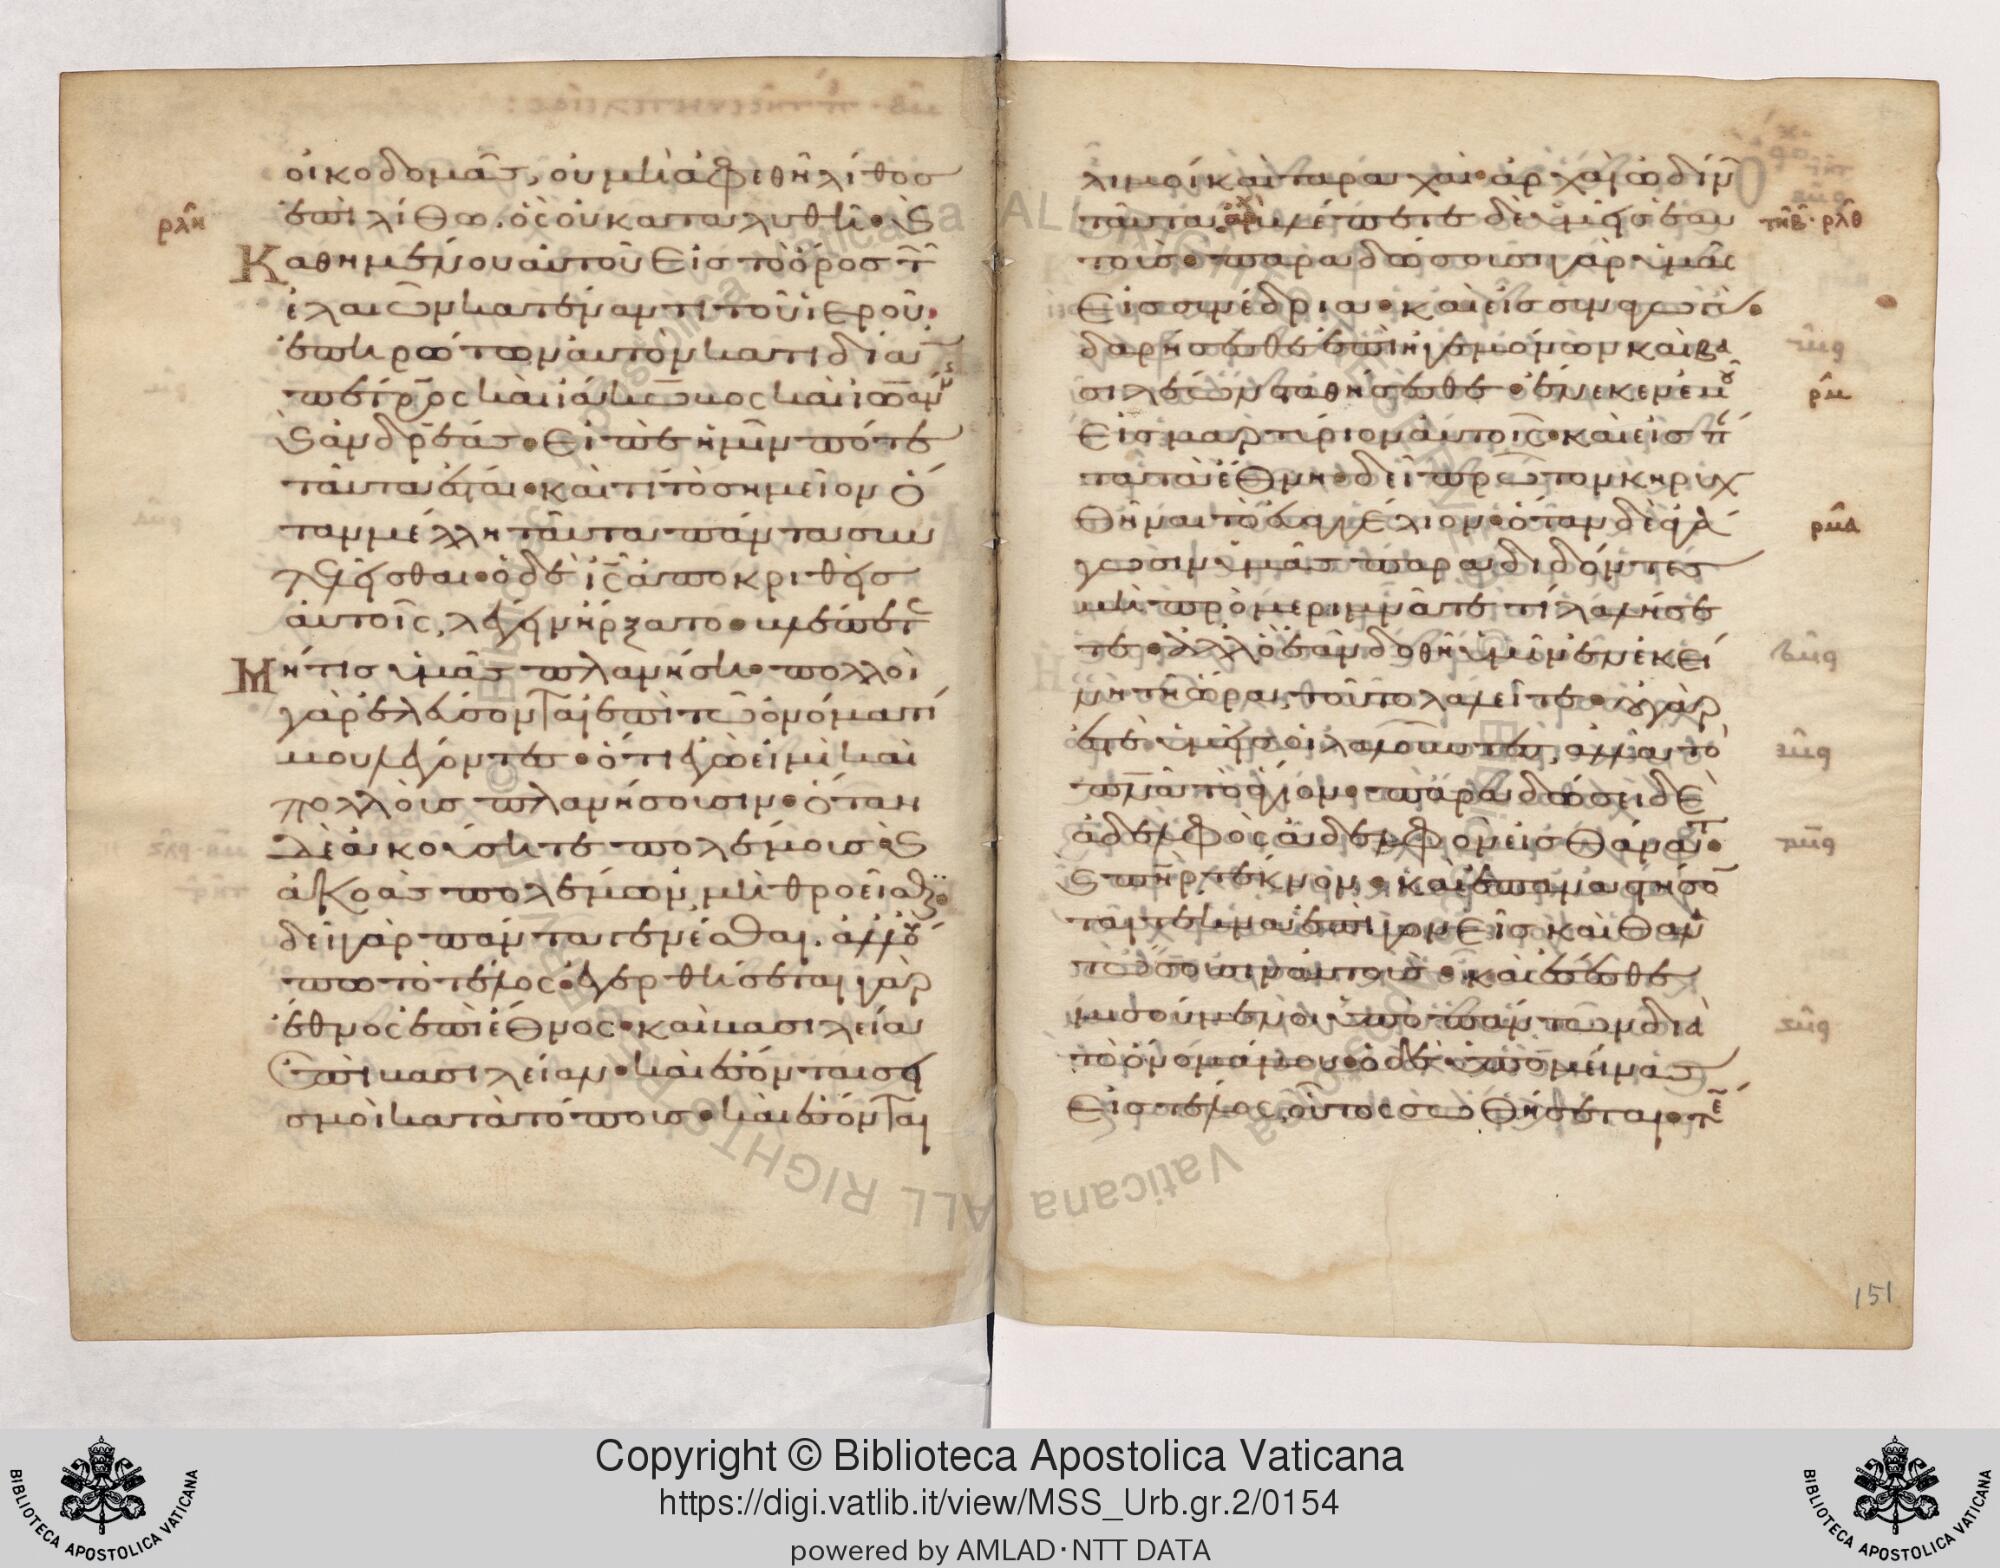 οἰκοδομάς, οὐ μὴ ἀφεθῆ λίθος
ρλη
ἐπὶ λίθω. ὃς οὐ καταλυθῆ. καὶ
Καθημένου αὐτοῦ εἰς τὸ ὄρος τῶν
ἐλαιῶν κατέναντι τοῦ ἱεροῦ.
ἐπηρώτων αὐτὸν κατιδίαν
πέτρος καὶ ἰάκωβος καὶ ἰωάν
καὶ ἀνδρέας. εἰπὲ ἡμῖν πότε
ταῦτα ἔσται. καὶ τί τὸ σημεῖον ὅ
ταν μέλλη ταῦτα πάντα συν
τελεῖσθαι. ὁ δὲ ις ἀποκριθεὶς
αὐτοῖς, λέγειν ἤρξατο. βλέπετε
Μή τις ὑμᾶς πλανήση. πολλοὶ
γὰρ ἐλεύσονται ἐπὶ τῶ ὀνόματί
μου λέγοντες. ὅτι ἐγώ εἰμι καὶ
πολλοὺς πλανήσουσιν. ὅταν
δὲ ἀκούσητε πολέμους καὶ
ἀκοὰς πολέμων, μὴ θροεῖσθε.
δεῖ γὰρ πάντα γενέσθαι. ἀλλ' οὔ
πω τὸ τέλος. ἐγερθήσεται γὰρ
ἔθνος ἐπὶ ἔθνος. καὶ βασιλεία
ἐπὶ βασιλείαν. καὶ ἔσονται σει
σμοὶ κατὰ τόπους. καὶ ἔσονται
λιμοὶ καὶ ταραχαί. ἀρχαὶ ὠδίνων
ταῦτα. βλέπετε δὲ ὑμεῖς ἑαυ
τηβ. ρλθ
τούς. παραδώσουσι γὰρ ὑμᾶς
εἰς συνέδρια. καὶ εἰς συναγωγὰς.
δαρήσεσθε ἐπὶ ἡγεμόνων καὶ βα
σιλέων σταθήσεσθε. ἕνεκεν ἐμοῦ
ρμ
εἰς μαρτύριον αὐτοῖς. καὶ εἰς πάν
τα τὰ ἔθνη. δεῖ πρῶτον κηρυχ
θῆναι τὸ εὐαγγέλιον. ὅταν δὲ ἀγά
ρμα
γωσιν ὑμᾶς παραδιδόντες
μὴ προμεριμνᾶτε τί λαλήσε
τε. ἀλλ' ὃ ἐὰν δοθῆ ὑμῖν ἐν ἐκεί
νη τῆ ὥρα, τοῦτο λαλεῖτε. οὐ γάρ
ἐστε ὑμεῖς οἱ λαλοῦντες, ἀλλὰ τὸ
πνα τὸ ἅγιον. παραδώσει δὲ
ἀδελφὸς ἀδελφὸν εἰς θάνατον.
καὶ πηρ τέκνον. καὶ ἐπαναστήσον
ται τέκνα ἐπὶ γονεῖς καὶ θανα
τώσουσιν αὐτούς. καὶ ἔσεσθε
μισούμενοι ὑπὸ πάντων διὰ
τὸ ὄνομά μου. ὁ δὲ ὑπομείνας
εἰς τέλος, οὗτος σωθήσεται.
151
Copyright © Biblioteca Apostolica Vaticana
https://digi.vatlib.it/view/MSS_Urb.gr.2/0154
powered by AMLAD·NTT DATA
BIBLIOTECA APOSTOLICA VATICANA
BIBLIOTECA APOSTOLICA VATICANA